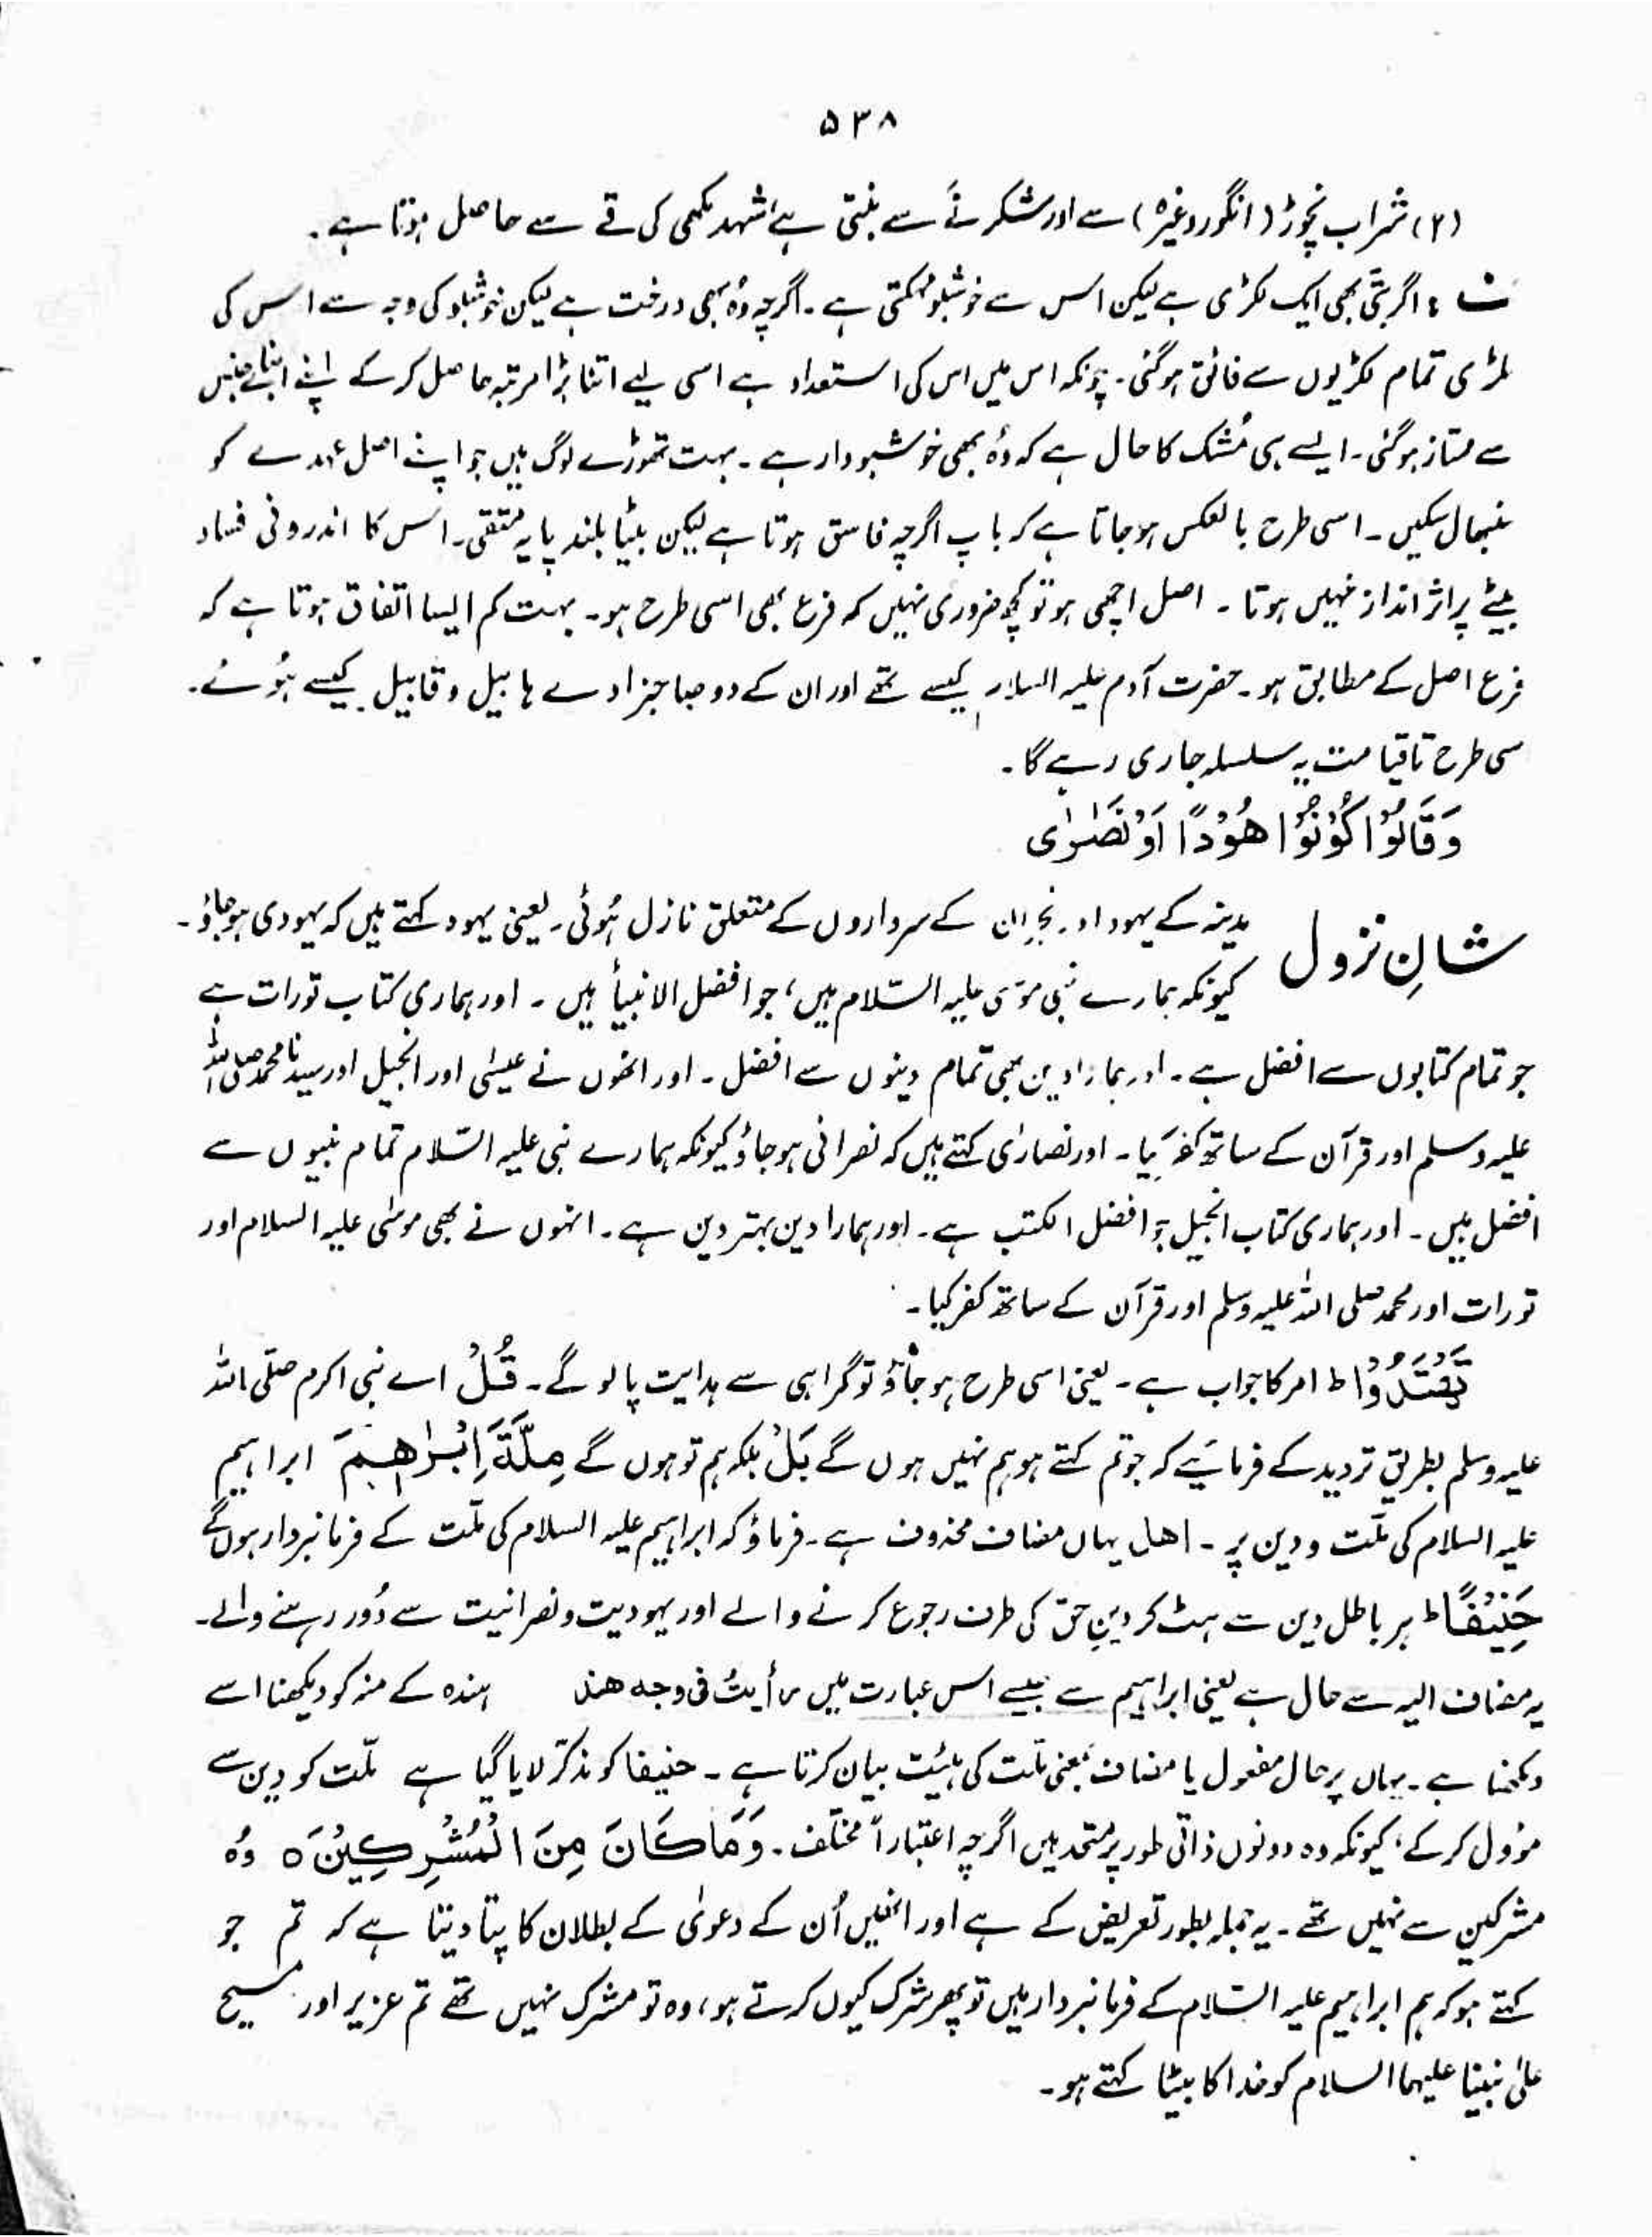 ۵۳۸
(۲) شراب نچوڑ (انگور وغیرہ) سے اور شکر نَے سے بنتی ہے، شہد مکھی کی قے سے حاصل ہوتا ہے۔
ف : اگربتّی بھی ایک لکڑی ہے لیکن اس سے خوشبو مہکتی ہے۔ اگرچہ وُہ بھی درخت ہے لیکن خوشبو کی وجہ سے اس کی
لڑی تمام لکڑیوں سے فائق ہوگئی۔ چونکہ اس میں اس کی استعداد ہے اسی لیے اتنا بڑا مرتبہ حاصل کر کے اپنے ابنائے جنس
سے ممتاز ہوگئی۔ ایسے ہی مُشک کا حال ہے کہ وُہ بھی خوشبودار ہے۔ بہت تھوڑے لوگ ہیں جو اپنے اصل عہدے کو
سنبھال سکیں۔ اسی طرح بالعکس ہوجاتا ہے کہ باپ اگرچہ فاسق ہوتا ہے لیکن بیٹا بلند پایہ متقی۔ اس کا اندرونی فساد
بیٹے پر اثر انداز نہیں ہوتا۔ اصل اچھی ہو تو کچھ ضروری نہیں کہ فرع بھی اسی طرح ہو۔ بہت کم ایسا اتفاق ہوتا ہے کہ
فرع اصل کے مطابق ہو۔ حضرت آدم علیہ السلام کیسے تھے اور ان کے دو صاحبزادے ہابیل و قابیل کیسے ہُوئے۔
سی طرح تاقیامت یہ سلسلہ جاری رہے گا۔
وَقَالُوْا كُوْنُوْا هُوْدًا اَوْ نَصٰرٰى
شانِ نزول مدینہ کے یہود اور نجران کے سرداروں کے متعلق نازل ہُوئی۔ یعنی یہود کہتے ہیں کہ یہودی ہوجاؤ۔
کیونکہ ہمارے نبی موسٰی علیہ السّلام ہیں، جو افضل الانبیأ ہیں۔ اور ہماری کتاب تورات ہے
جو تمام کتابوں سے افضل ہے۔ اور ہمارا دین بھی تمام دینوں سے افضل۔ اور انھوں نے عیسٰی اور انجیل اور سیدنا محمد صلی اللہ
علیہ وسلم اور قرآن کے ساتھ کفر کیا۔ اور نصارٰی کہتے ہیں کہ نصرانی ہوجاؤ کیونکہ ہمارے نبی علیہ السّلام تمام نبیوں سے
افضل ہیں۔ اور ہماری کتاب انجیل جو افضل الکتب ہے۔ اور ہمارا دین بہتر دین ہے۔ انہوں نے بھی موسٰی علیہ السلام اور
تورات اور محمد صلی اللہ علیہ وسلم اور قرآن کے ساتھ کفر کیا۔
تَهْتَدُوْا ط امر کا جواب ہے۔ یعنی اسی طرح ہوجاؤ تو گمراہی سے ہدایت پا لو گے۔ قُلْ اے نبی اکرم صلّی اللہ
علیہ وسلم بطریقِ تردید کے فرمائیے کہ جو تم کہتے ہو ہم نہیں ہوں گے بَلْ بلکہ ہم تو ہوں گے مِلَّةَ اِبْرٰهِيْمَ ابراہیم
علیہ السلام کی ملّت و دین پر۔ اهل یہاں مضاف محذوف ہے۔ فرماؤ کہ ابراہیم علیہ السلام کی ملّت کے فرمانبردار ہوں گے
حَنِيْفًا ط ہر باطل دین سے ہٹ کر دینِ حق کی طرف رجوع کرنے والے اور یہودیت و نصرانیت سے دُور رہنے والے۔
یہ مضاف الیہ سے حال ہے یعنی ابراہیم سے جیسے اس عبارت میں رأيتُ فی وجه هند ہندہ کے منہ کو دیکھنا اسے
دیکھنا ہے۔ یہاں پر حال مفعول یا مضاف بمعنی ملّت کی ہیئت بیان کرتا ہے۔ حنیفا کو مذکّر لایا گیا ہے ملّت کو دین سے
مؤول کر کے، کیونکہ وہ دونوں ذاتی طور پر متحد ہیں اگرچہ اعتباراً مختلف۔ وَمَا كَانَ مِنَ الْمُشْرِكِيْنَ ه وُہ
مشرکین سے نہیں تھے۔ یہ جملہ بطور تعریض کے ہے اور انھیں اُن کے دعوٰی کے بطلان کا پتا دیتا ہے کہ تم جو
کہتے ہو کہ ہم ابراہیم علیہ السّلام کے فرمانبردار ہیں تو پھر شرک کیوں کرتے ہو، وہ تو مشرک نہیں تھے تم عزیر اور مسیح
علیٰ نبینا علیہما السلام کو خدا کا بیٹا کہتے ہو۔